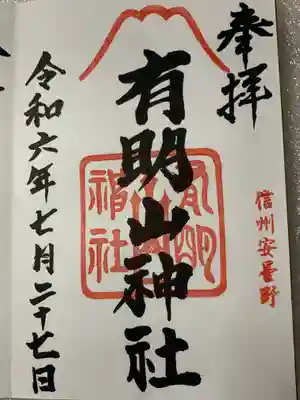 奉拝
信州安曇野
有明山神社
有明山神社
令和六年七月二十七日